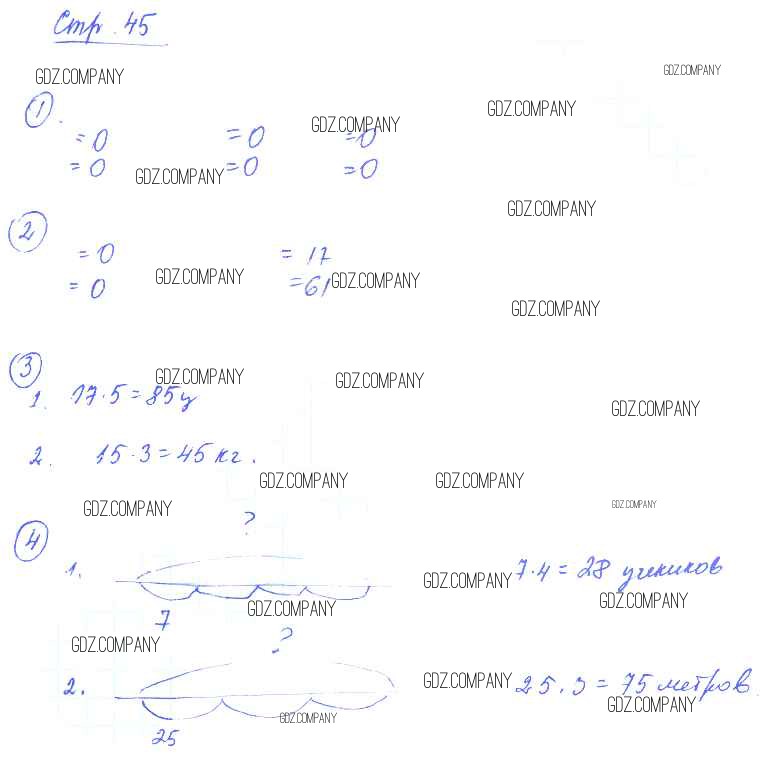 Стр. 45
GDZ.COMPANY GDZ.COMPANY
1. GDZ.COMPANY GDZ.COMPANY
= 0 = 0 = 0
= 0 GDZ.COMPANY = 0 = 0
GDZ.COMPANY
2
= 0 = 17
= 0 GDZ.COMPANY = 61 GDZ.COMPANY
GDZ.COMPANY
3 GDZ.COMPANY GDZ.COMPANY
1. 17·5 = 85 ц
GDZ.COMPANY
2. 15·3 = 45 кг.
GDZ.COMPANY GDZ.COMPANY
GDZ.COMPANY GDZ.COMPANY
4 ?
1. GDZ.COMPANY 7·4 = 28 учеников
7 GDZ.COMPANY GDZ.COMPANY
GDZ.COMPANY ?
2. GDZ.COMPANY 25·3 = 75 метров.
GDZ.COMPANY GDZ.COMPANY
25